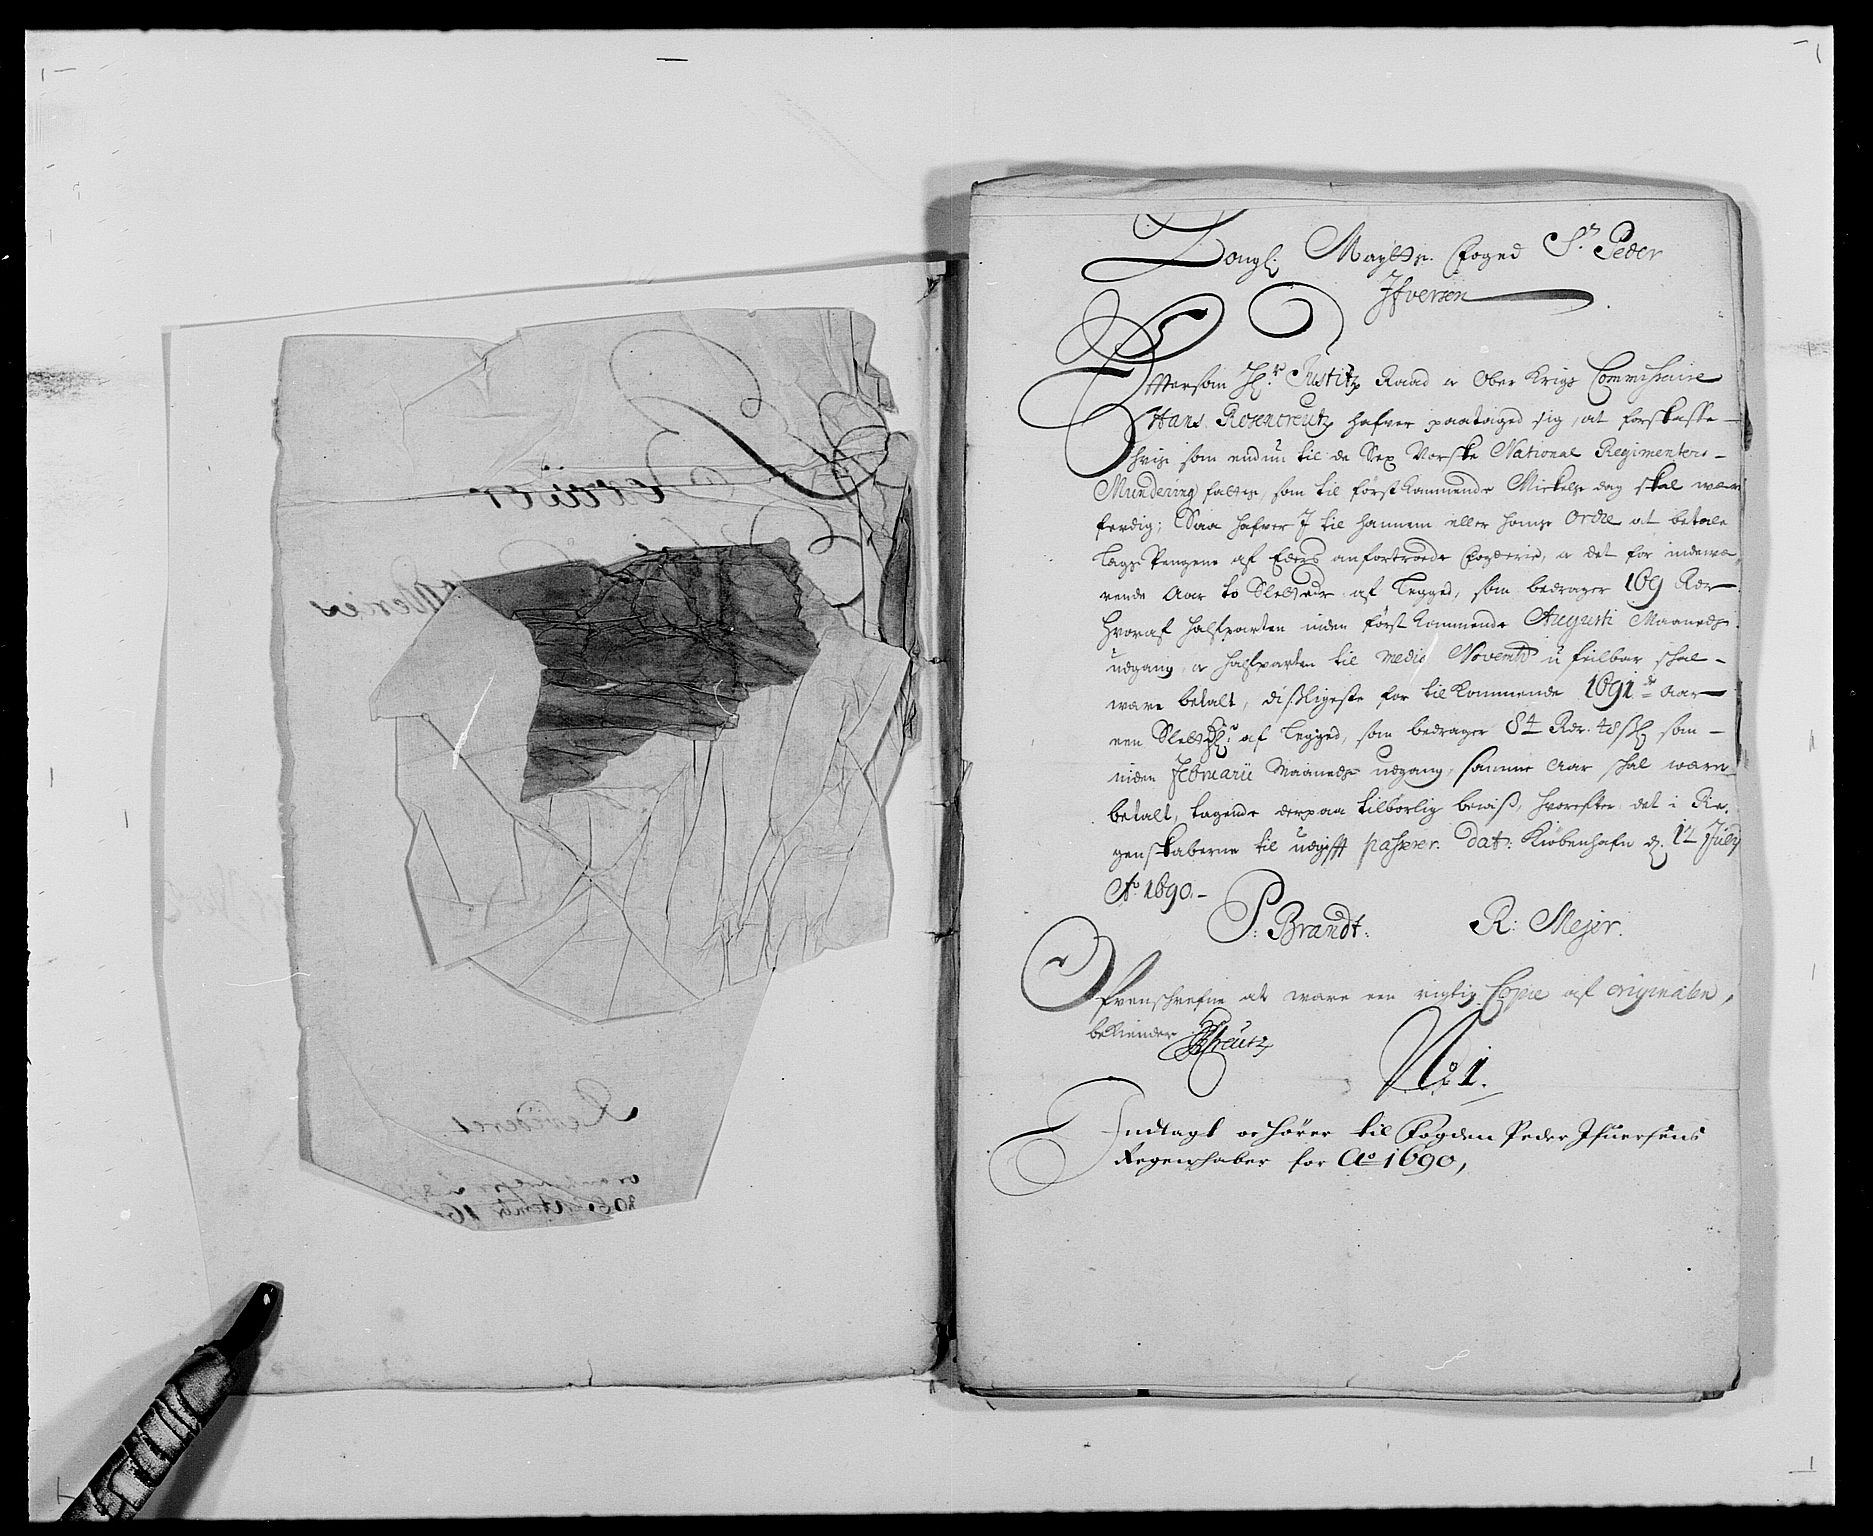 Kongl: Maÿtts. Foged Sr. Peder
Ifversen
Eftersom Hr. Justitz Raad oc Ober Krigs Commissaire
Hans Rosencreutz hafver paataged sig, at forskaffe
hvis som endnu til de Sex Norske National Regimenters
Mundering fattes, som til förstkommende Mickels dag skal være
ferdig; Saa hafver I til hannem eller hans Ordre at betale
Lægs Pengene af Eders anfortroede Fogderie, oc det for indevæ-
rende Aar to Slettedlr. af Legged, som bedrager 169 Rdr
hvoraf halfparten inden först kommende Augusti Maaneds
udgang, oc halfparten til medio Novemb. ufeilbar skal
være betalt, dissligeste for tilkommende 1691de Aar
een Slettdlr. af Legged, som bedrager 84 Rdr. 48 sk som
inden Februarii Maaneds udgang samme Aar skal være
betalt, tagende derpaa tilbørlig beviss, hvorefter det i Re-
genskaberne til udgifft passerer. Dat: Kiöbenhafn d. 12 Julÿ
Ao. 1690.
P: Brandt.
R: Mejer.
Ofvenschrefne at være een rigtig Copie af originalen,
bekiender
No 1.
Indtagt oc hører til Fogden Peder Ifuersens
Regenskaber for Ao 1690,
Revideret